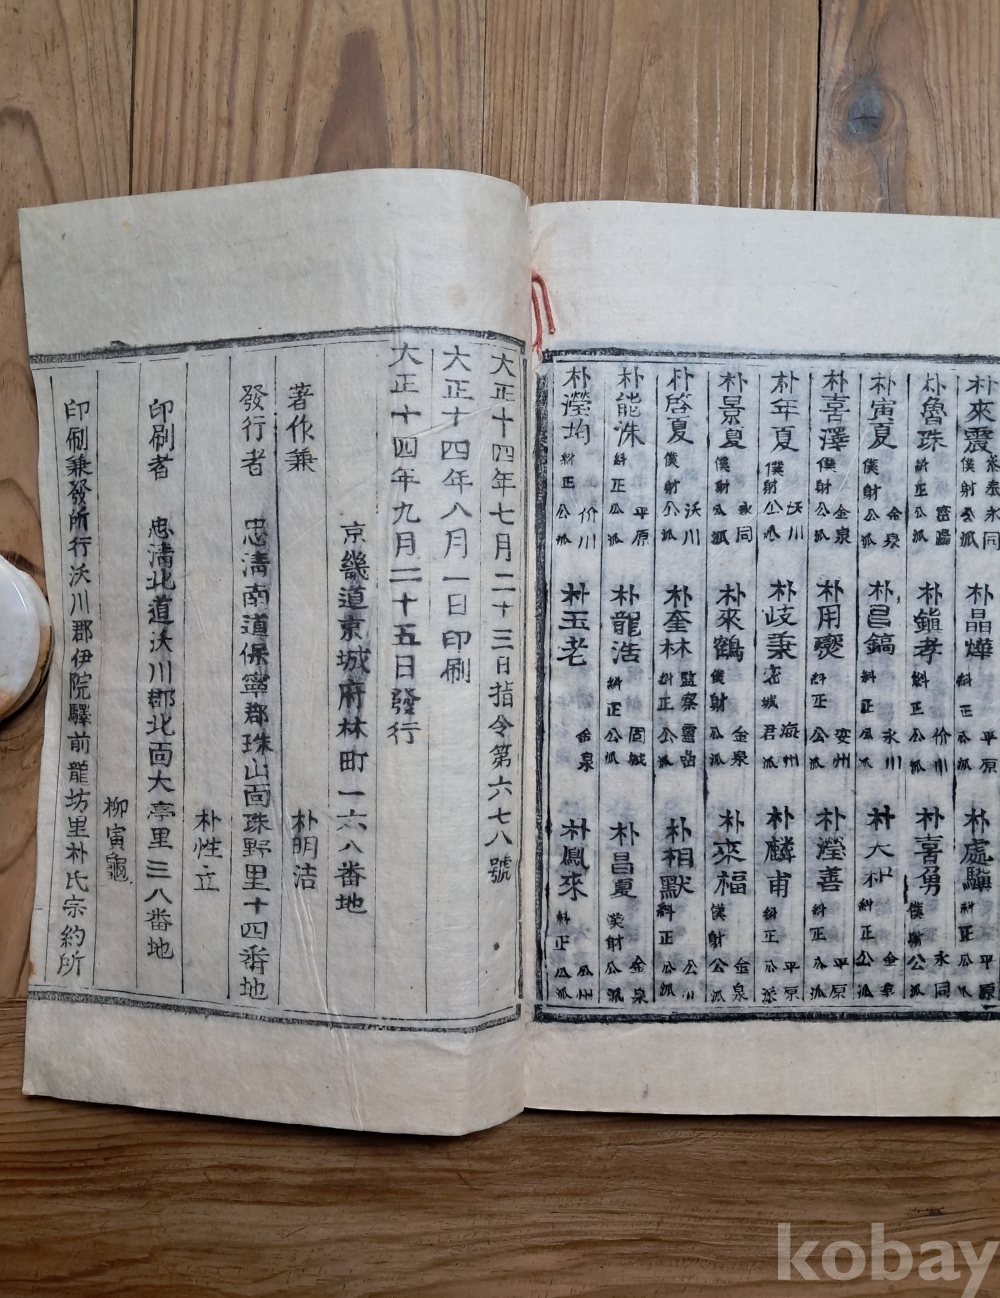 朴來震
僕射公派 永同
朴晶燁 糾正公派 平原
朴處驥 糾正公派 平原
朴魯珠 糾正公派 密陽
朴鎭孝 糾正公派 价川
朴喜勇 僕射公派 永同
朴寅夏 僕射公派 金泉
朴昌鎬 糾正公派 永川
朴大和 糾正公派 金泉
朴喜澤 僕射公派 金泉
朴用燮 糾正公派 安州
朴瀅善 糾正公派 平原
朴年夏 僕射公派 沃川
朴歧秉 密城君派 海州
朴麟甫 糾正公派 平原
朴景夏 僕射公派 永同
朴來鶴 僕射公派 金泉
朴來福 僕射公派 金泉
朴啓夏 僕射公派 沃川
朴奎林 糾正公派 監察 靈岩
朴相默 糾正公派 公川
朴能洙 糾正公派 平原
朴龍浩 糾正公派 固城
朴昌夏 僕射公派 金泉
朴瀅均 糾正公派 价川
朴玉老 金泉
朴鳳來 糾正公派 公州
大正十四年七月二十三日指令第六七八號
大正十四年八月一日印刷
大正十四年九月二十五日發行
京畿道京城府林町一六八番地
著作兼 朴明洁
發行者 忠淸南道保寧郡珠山面珠野里十四番地
朴性立
印刷者 忠淸北道沃川郡北面大亭里三八番地
柳寅龜
印刷兼發所行沃川郡伊院驛前龍坊里朴氏宗約所
kobay